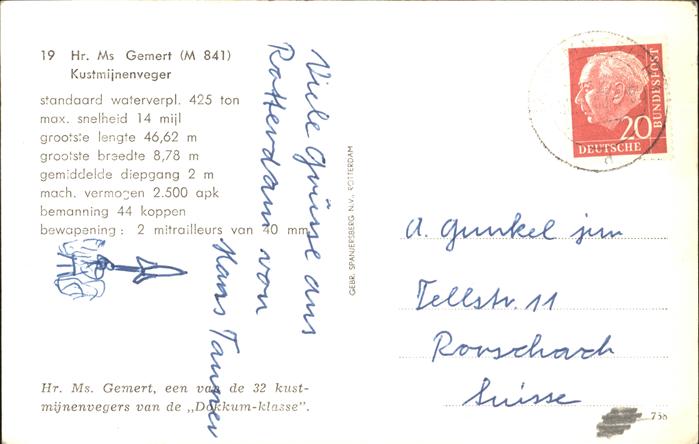 19 Hr. Ms Gemert (M 841)
Kustmijnenveger
standaard waterverpl. 425 ton
max. snelheid 14 mijl
grootste lengte 46,62 m
grootste breedte 8,78 m
gemiddelde diepgang 2 m
mach. vermogen 2.500 apk
bemanning 44 koppen
bewapening: 2 mitrailleurs van 40 mm
Hr. Ms. Gemert, een van de 32 kust-
mijnenvegers van de „Dokkum-klasse".
Viele Grüsse aus
Rotterdam von
Hans Tanner
GEBR. SPANJERSBERG N.V., ROTTERDAM
20
DEUTSCHE
BUNDESPOST
A. Gunkel jun
Tellstr. 11
Rorschach
Suisse
758